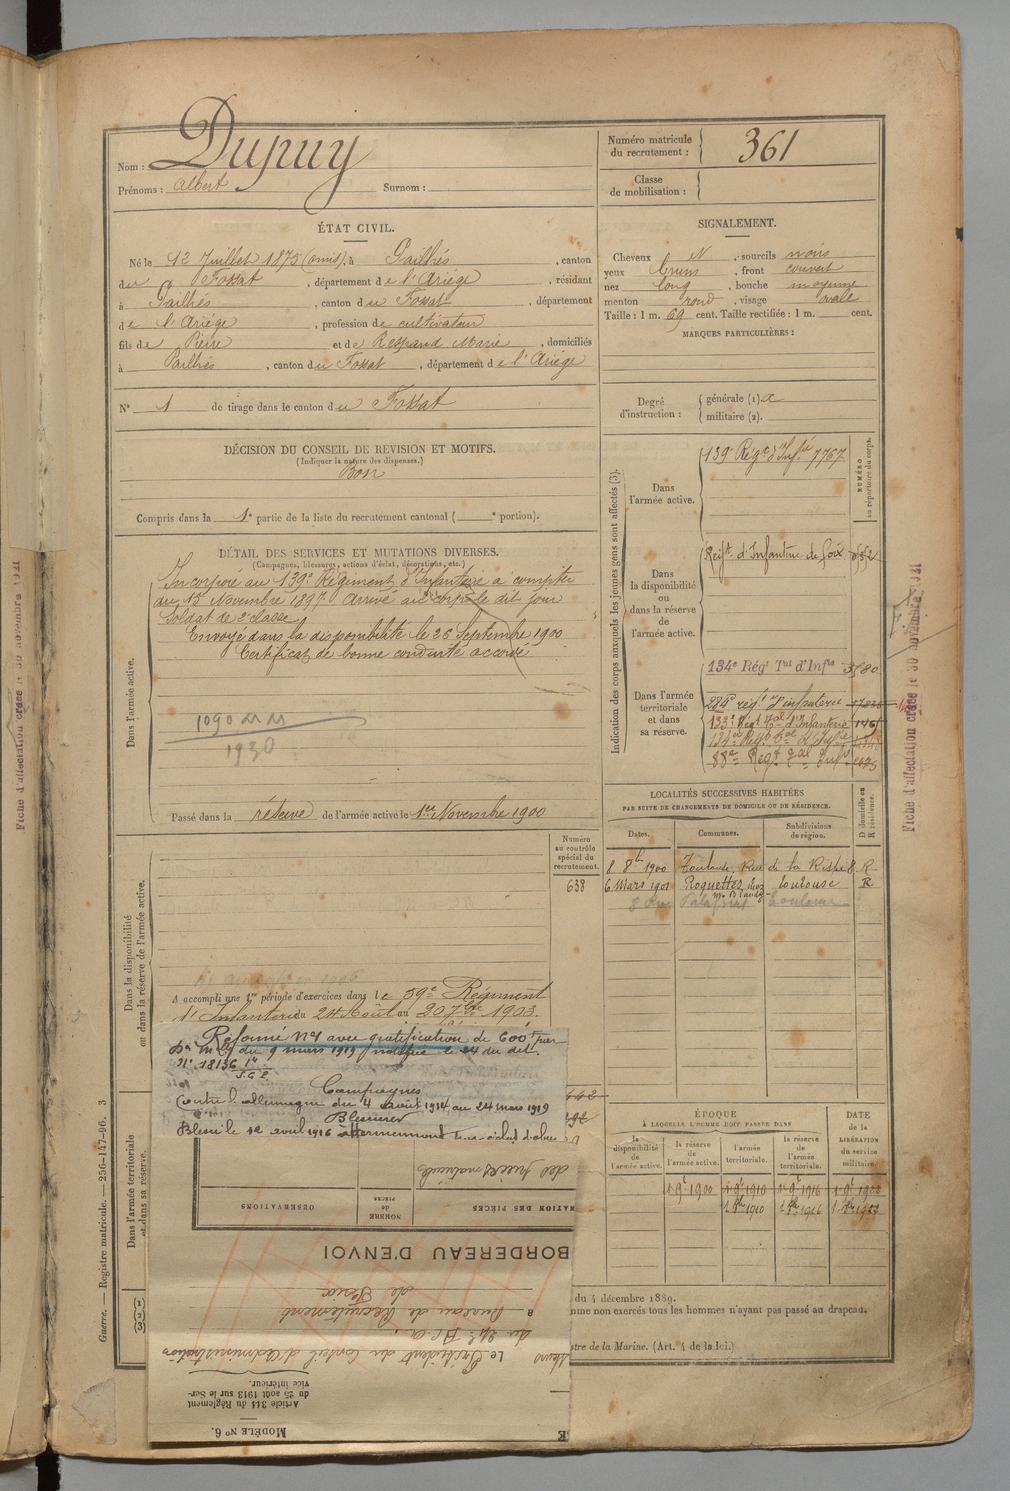 Nom : Dupuy
Prénoms : Albert Surnom :
Numéro matricule du recrutement : 361
Classe de mobilisation :
ÉTAT CIVIL.
Né le 12 Juillet 1875 (omis), à Pailhés, canton
du Fossat, département de l'Ariége, résidant
à Pailhés, canton du Fossat, département
de l'Ariége, profession de cultivateur
fils de Pierre et de Respaud Marie, domiciliés
à Pailhés, canton du Fossat, département de l'Ariége
N° 1 de tirage dans le canton du Fossat
SIGNALEMENT.
Cheveux N, sourcils noirs
yeux bruns, front couvert
nez long, bouche moyenne
menton rond, visage ovale
Taille : 1 m. 69 cent. Taille rectifiée : 1 m. cent.
MARQUES PARTICULIÈRES :
Degré d'instruction : générale (1). militaire (2).
DÉCISION DU CONSEIL DE REVISION ET MOTIFS.
(Indiquer la nature des dispenses.)
Bon
Compris dans la 1e partie de la liste du recrutement cantonal ( e portion).
DÉTAIL DES SERVICES ET MUTATIONS DIVERSES.
(Campagnes, blessures, actions d'éclat, décorations, etc.)
Dans l'armée active.
Incorporé au 139e Régiment d'Infanterie à compter
du 15 Novembre 1897. Arrivé au corps le dit jour
Soldat de 2e classe
Envoyé dans la disponibilité le 26 Septembre 1900
Certificat de bonne conduite accordé
1930
Passé dans la réserve de l'armée active le 1er Novembre 1900
Indication des corps auxquels les jeunes gens sont affectés (3).
NUMÉRO au répertoire du corps.
Dans l'armée active.
139e Régt d'Infie 7767
Dans la disponibilité ou dans la réserve de l'armée active.
Régt. d'Infanterie de Foix
Dans l'armée territoriale et dans sa réserve.
134e Régt Tal d'Infie 3580
284e rég. d'infanterie
133e Régt Tal d'Infanterie
134e Régt Tal d'Infie
88e Régt Tal Infie
Fiche d'affectation créée le 30 novembre 1921
LOCALITÉS SUCCESSIVES HABITÉES
PAR SUITE DE CHANGEMENTS DE DOMICILE OU DE RÉSIDENCE.
D domicile ou R résidence.
Dates. Communes. Subdivisions de région.
8 8bre 1900 Toulouse, Rue de la R
6 Mars 1901 Roquettes, chez Toulouse R
Toulouse
Dans la disponibilité ou dans la réserve de l'armée active.
Numéro au contrôle spécial du recrutement.
638
A accompli une 1re période d'exercices dans le 59e Régiment
d'Infanterie du 24 Août au 20 7bre 1903.
Réformé n°1 avec gratification de 600f par
Don Mlle du 9 mars 1919 notifiée le 24 du dit.
N° 18136
Campagnes
Contre l'allemagne du 4 août 1914 au 24 mars 1919
Blessures
Blessé le 12 avril 1916
des pièces matricules
OBSERVATIONS
NOMBRE de PIÈCES
ATION DES PIÈCES
BORDEREAU D'ENVOI
à Bureau de Recrutement
de Foix
Le Président du Conseil d'Administration
Article 344 du Règlement
du 25 août 1913 sur le Ser-
vice intérieur.
MODÈLE N° 6.
Dans l'armée territoriale et dans sa réserve.
ÉPOQUE
À LAQUELLE L'HOMME DOIT PASSER DANS
DATE de la LIBÉRATION du service militaire.
la disponibilité de l'armée active. la réserve de l'armée active. l'armée territoriale. la réserve de l'armée territoriale.
1 9bre 1900 1 9bre 1910 1 9bre 1916 1 9bre 1922
du 4 décembre 1889.
mme non exercés tous les hommes n'ayant pas passé au drapeau.
stre de la Marine. (Art. 4 de la loi.)
Guerre. — Registre matricule. — 256-147-96. 3